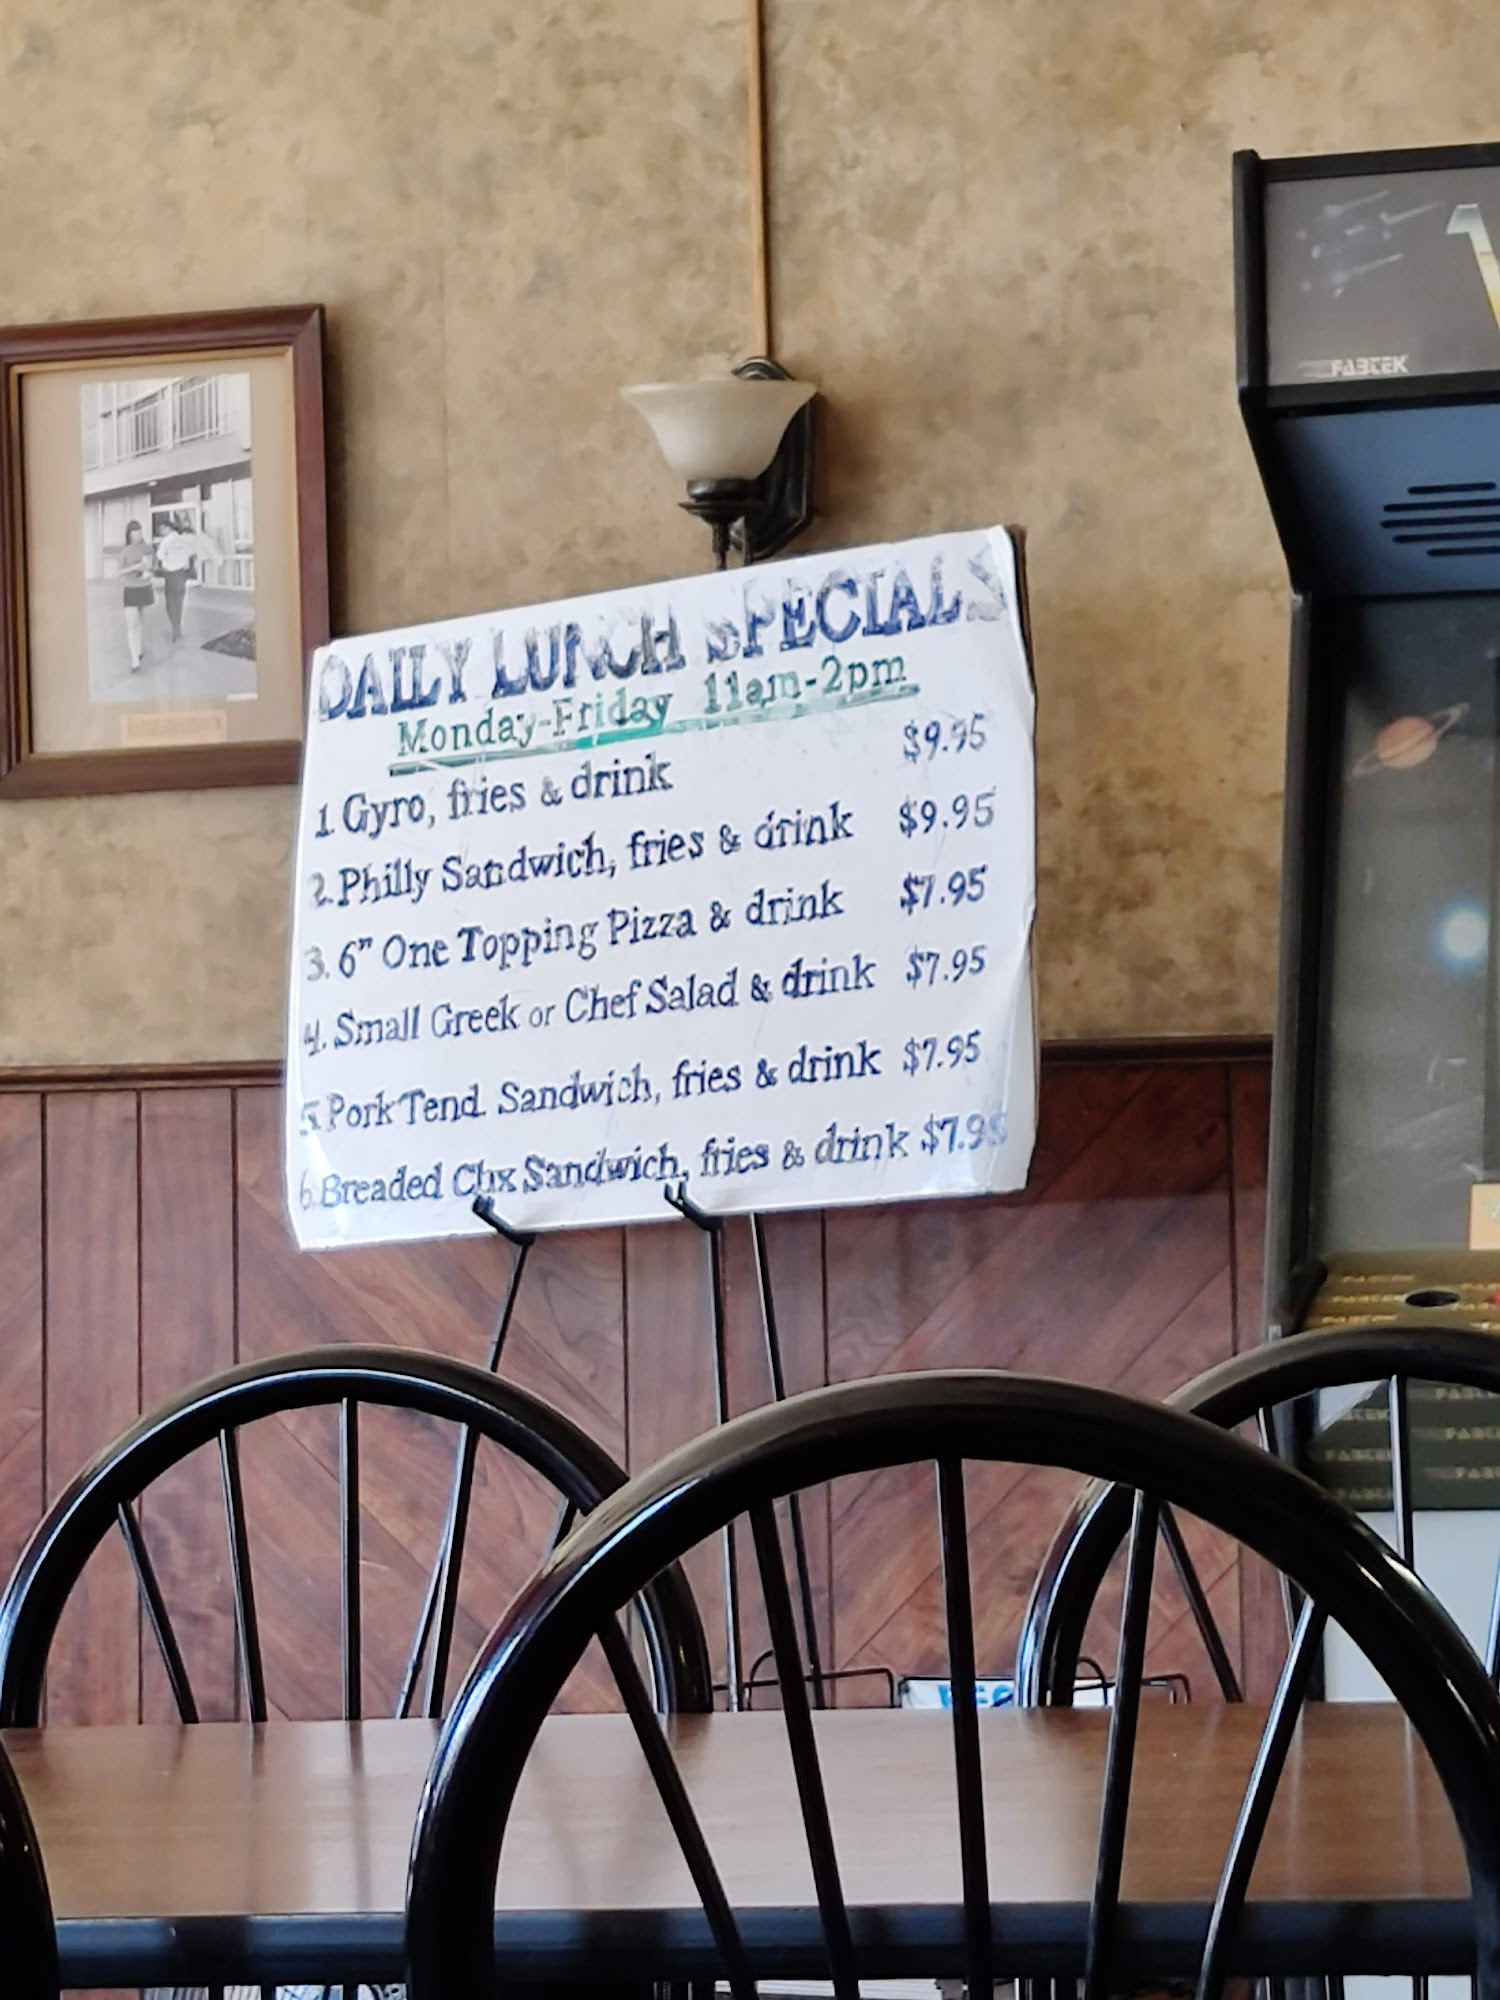 DAILY LUNCH SPECIALS
Monday-Friday 11am-2pm
1. Gyro, fries & drink $9.95
2. Philly Sandwich, fries & drink $9.95
3. 6" One Topping Pizza & drink $7.95
4. Small Greek or Chef Salad & drink $7.95
5. Pork Tend. Sandwich, fries & drink $7.95
6. Breaded Chx Sandwich, fries & drink $7.95
FABTEK